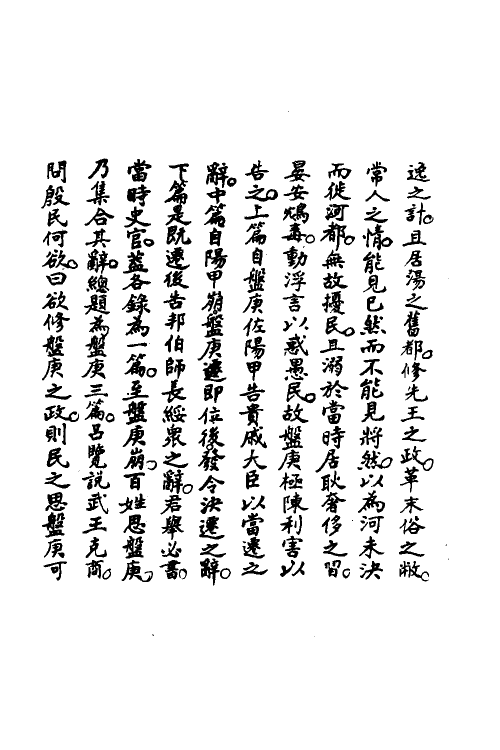 逸之計。且居蕩之舊都。修先王之政。革末俗之敝。
常人之情。能見已然而不能見將然。以為河未決
而徙河都。無故擾民。且溺於當時居耿奢侈之習。
晏安鴆毒。動浮言以惑愚民。故盤庚極陳利害以
告之。上篇自盤庚佐陽甲告貴戚大臣以當遷之
辭。中篇自陽甲崩盤庚遷即位後發令決遷之辭。
下篇是既遷後告邦伯師長綏眾之辭。君舉必書。
當時史官。蓋各錄為一篇。至盤庚崩。百姓思盤庚。
乃集合其辭。總題為盤庚三篇。呂覽說武王克商。
問殷民何欲。曰欲修盤庚之政。則民之思盤庚可